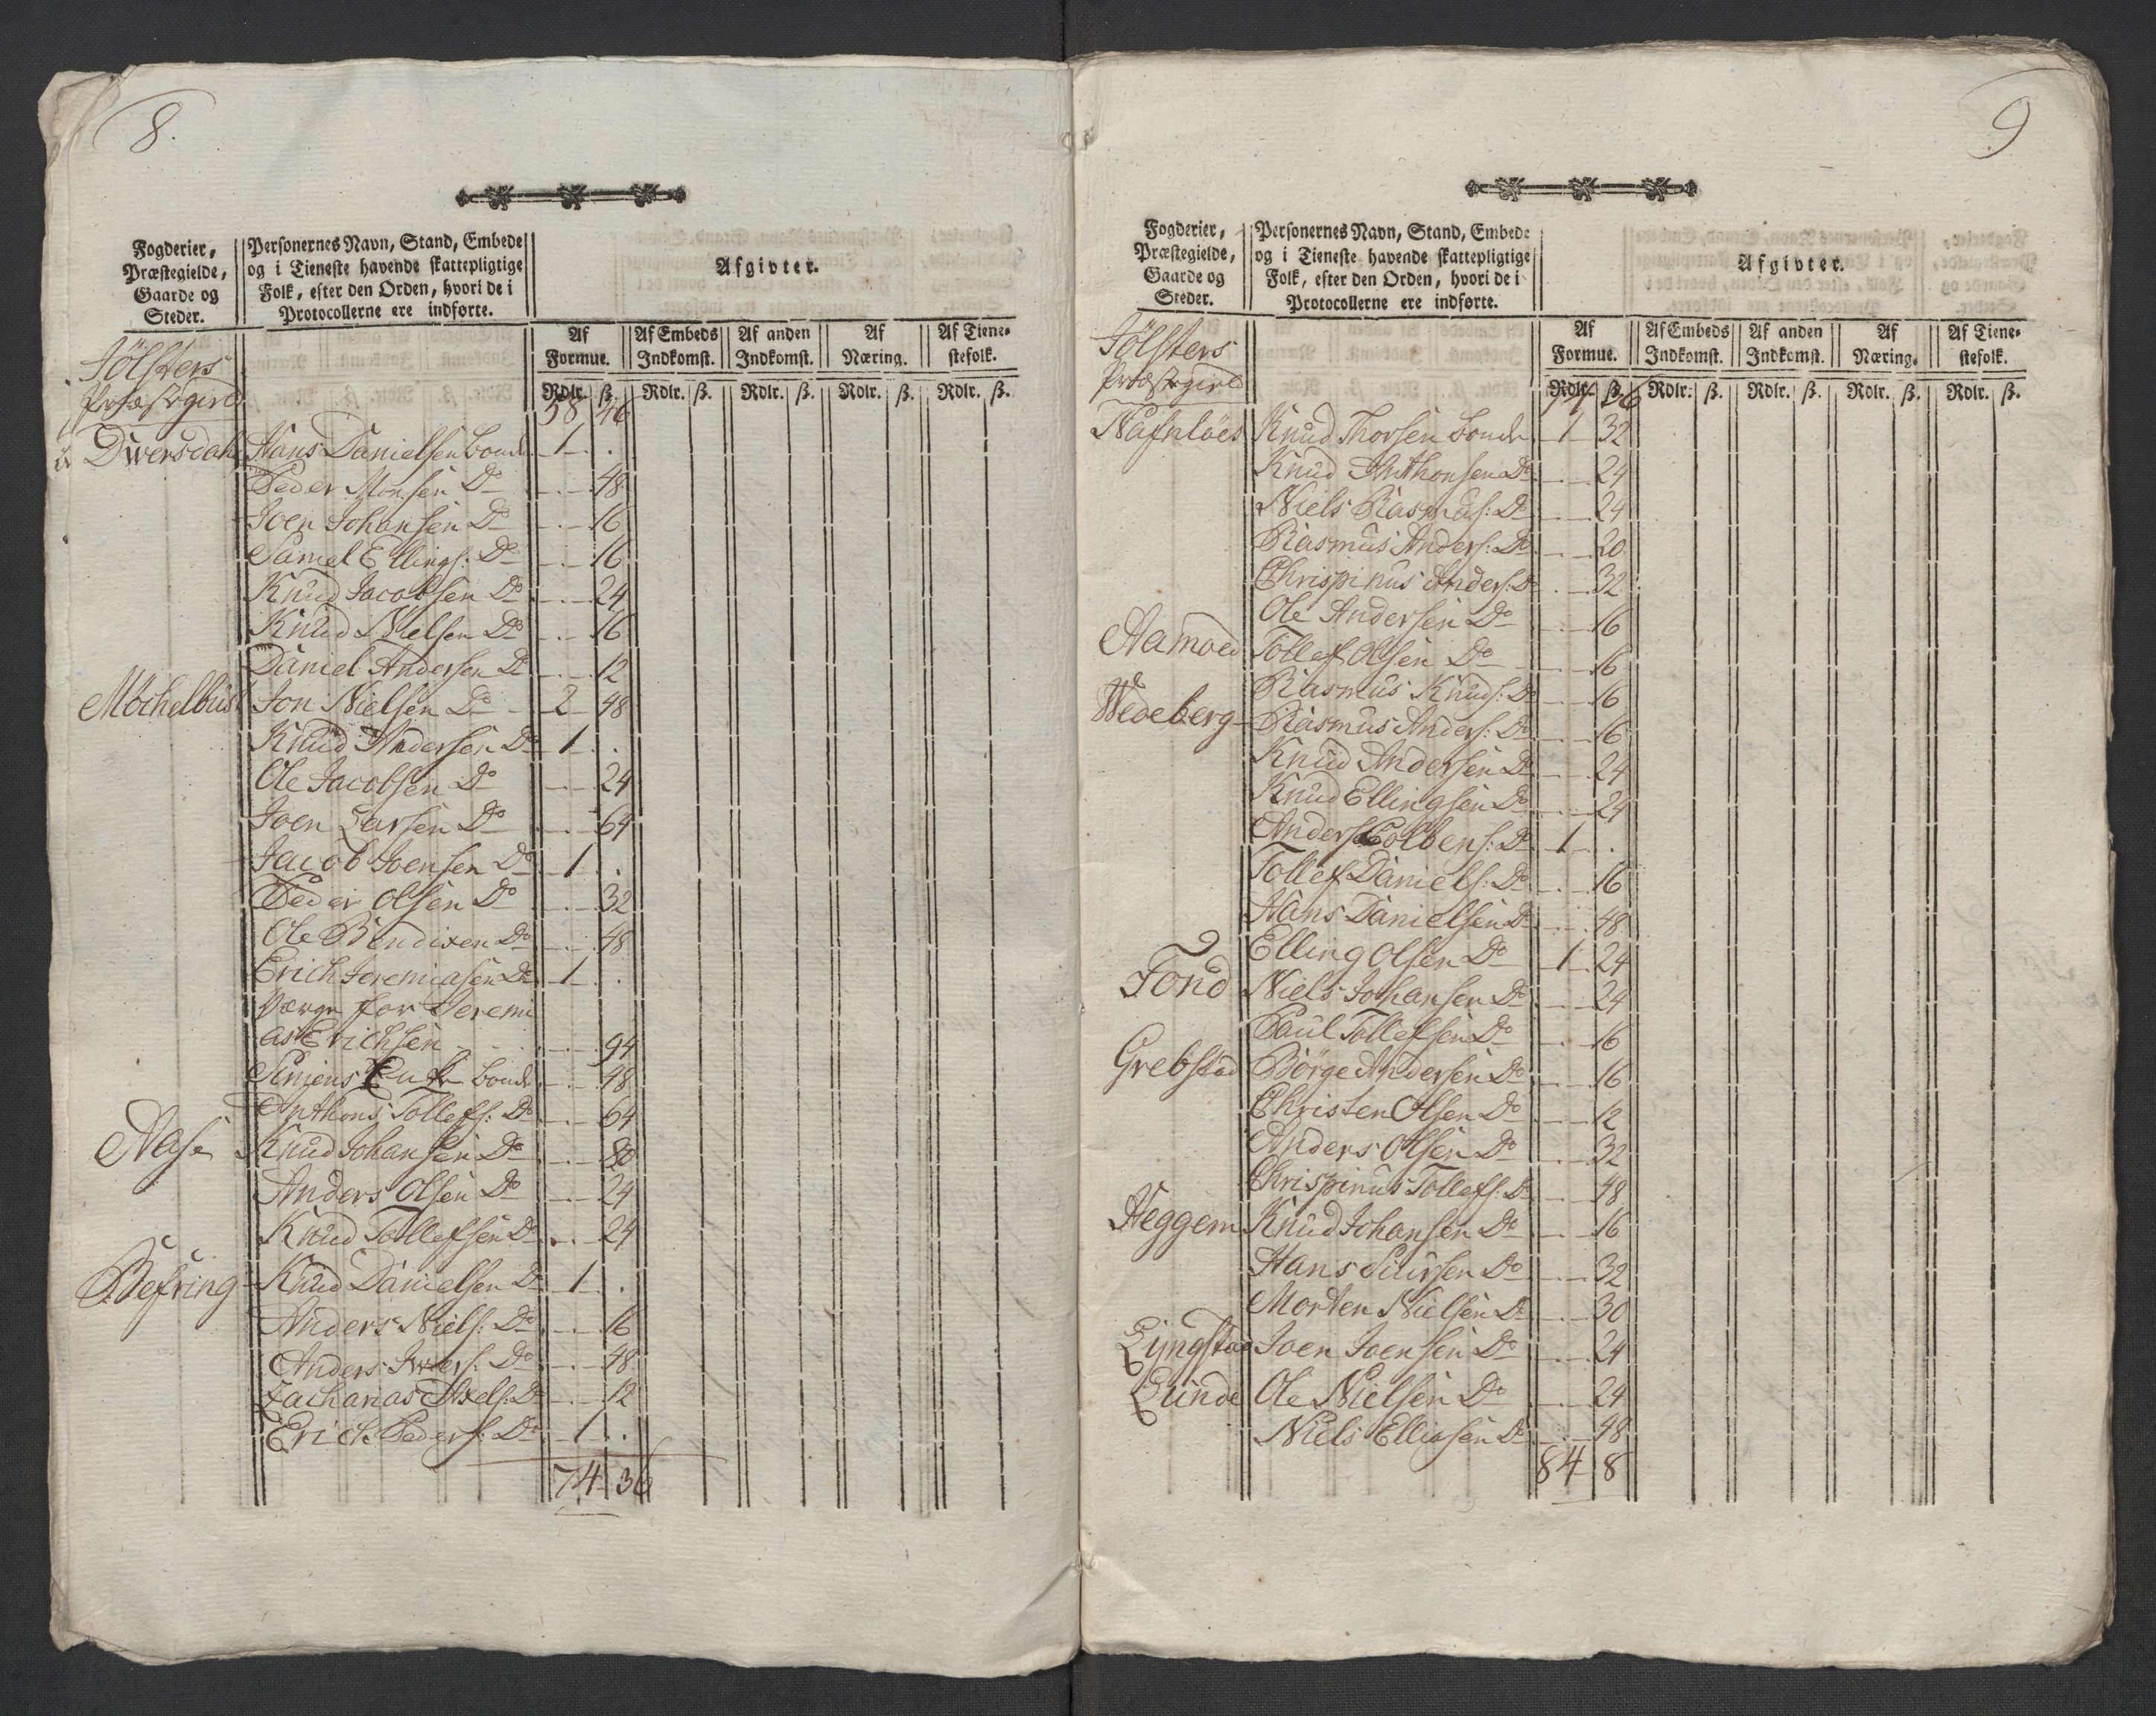 8.
Fogderier,
Præstegielde,
Gaarde og
Steder.
Personernes Navn, Stand, Embede
og i Tieneste havende skattepligtige
Folk, efter den Orden, hvori de i
Protocollerne ere indførte.
Afgivter.
Af Formue.
Af Embeds Indkomst.
Af anden Indkomst.
Af Næring.
Af Tienestefolk.
Rdlr. ß. Rdlr. ß. Rdlr. ß. Rdlr. ß. Rdlr. ß.
Jölsters
Præstegield
58 46
Dwersdahl Hans Danielsen bonde 1 .
Peder Monsen Do 48
Joen Johansen Do 16
Samel Ellings: Do 16
Knud Jacobsen Do 24
Knud Nielsen Do 16
Daniel Andersen Do 12
Mochelbust Jon Nielsen Do 2 48
Knud Andersen Do 1 .
Ole Jacobsen Do 24
Joen Larsen Do 64
Jacob Joensen Do 1 .
Peder Olsen Do 32
Ole Bendixen Do 48
Erich Jeremiasen Do 1 .
Værge for Jeremi
as Erichsen 94
Simens bonde 48
Anthons Tollefs: Do 64
Aase Knud Johansen Do 80
Anders Olsen Do 24
Knud Tollefsen Do 24
Befring Knud Danielsen Do 1 .
Anders Niels: Do 16
Anders Iwers: Do 48
Zacharias Axels: Do 12
Erich Peders: Do 1 .
74 36
9
Fogderier,
Præstegielde,
Gaarde og
Steder.
Personernes Navn, Stand, Embede
og i Tieneste havende skattepligtige
Folk, efter den Orden, hvori de i
Protocollerne ere indførte.
Afgivter.
Af Formue.
Af Embeds Indkomst.
Af anden Indkomst.
Af Næring.
Af Tienestefolk.
Rdlr. ß. Rdlr. ß. Rdlr. ß. Rdlr. ß. Rdlr. ß.
Jölsters
Præstegield
74 36
Nafnløes Knud Thorsen bonde 1 32
Knud Anthonsen Do 24
Niels Rasmus: Do 24
Rasmus Anders: Do 20
Chrispinus Anders: Do 32
Ole Andersen Do 16
Aamoed Tollef Olsen Do 16
Rasmus Knuds: Do 16
Wedeberg Rasmus Anders: Do 16
Knud Andersen Do 24
Knud Ellingsen Do 24
Anders Colbens: Do 1 .
Tollef Daniels: Do 16
Hans Danielsen Do 48
Elling Olsen Do 1 24
Fond Niels Johansen Do 24
Poul Tollefsen Do 16
Grebstad Börge Andersen Do 16
Christen Olsen Do 12
Anders Olsen Do 32
Chrispinus Tollefs: Do 48
Heggem Knud Johansen Do 16
Hans Siursen Do 32
Morten Nielsen Do 30
Lyngstad Joen Joensen Do 24
Lunde Ole Nielsen Do 24
Niels Elliasen Do 48
84 8